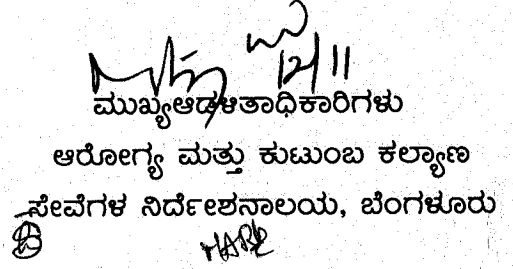 12/11
ಮುಖ್ಯಆಡಳಿತಾಧಿಕಾರಿಗಳು
ಆರೋಗ್ಯ ಮತ್ತು ಕುಟುಂಬ ಕಲ್ಯಾಣ
ಸೇವೆಗಳ ನಿರ್ದೇಶನಾಲಯ, ಬೆಂಗಳೂರು